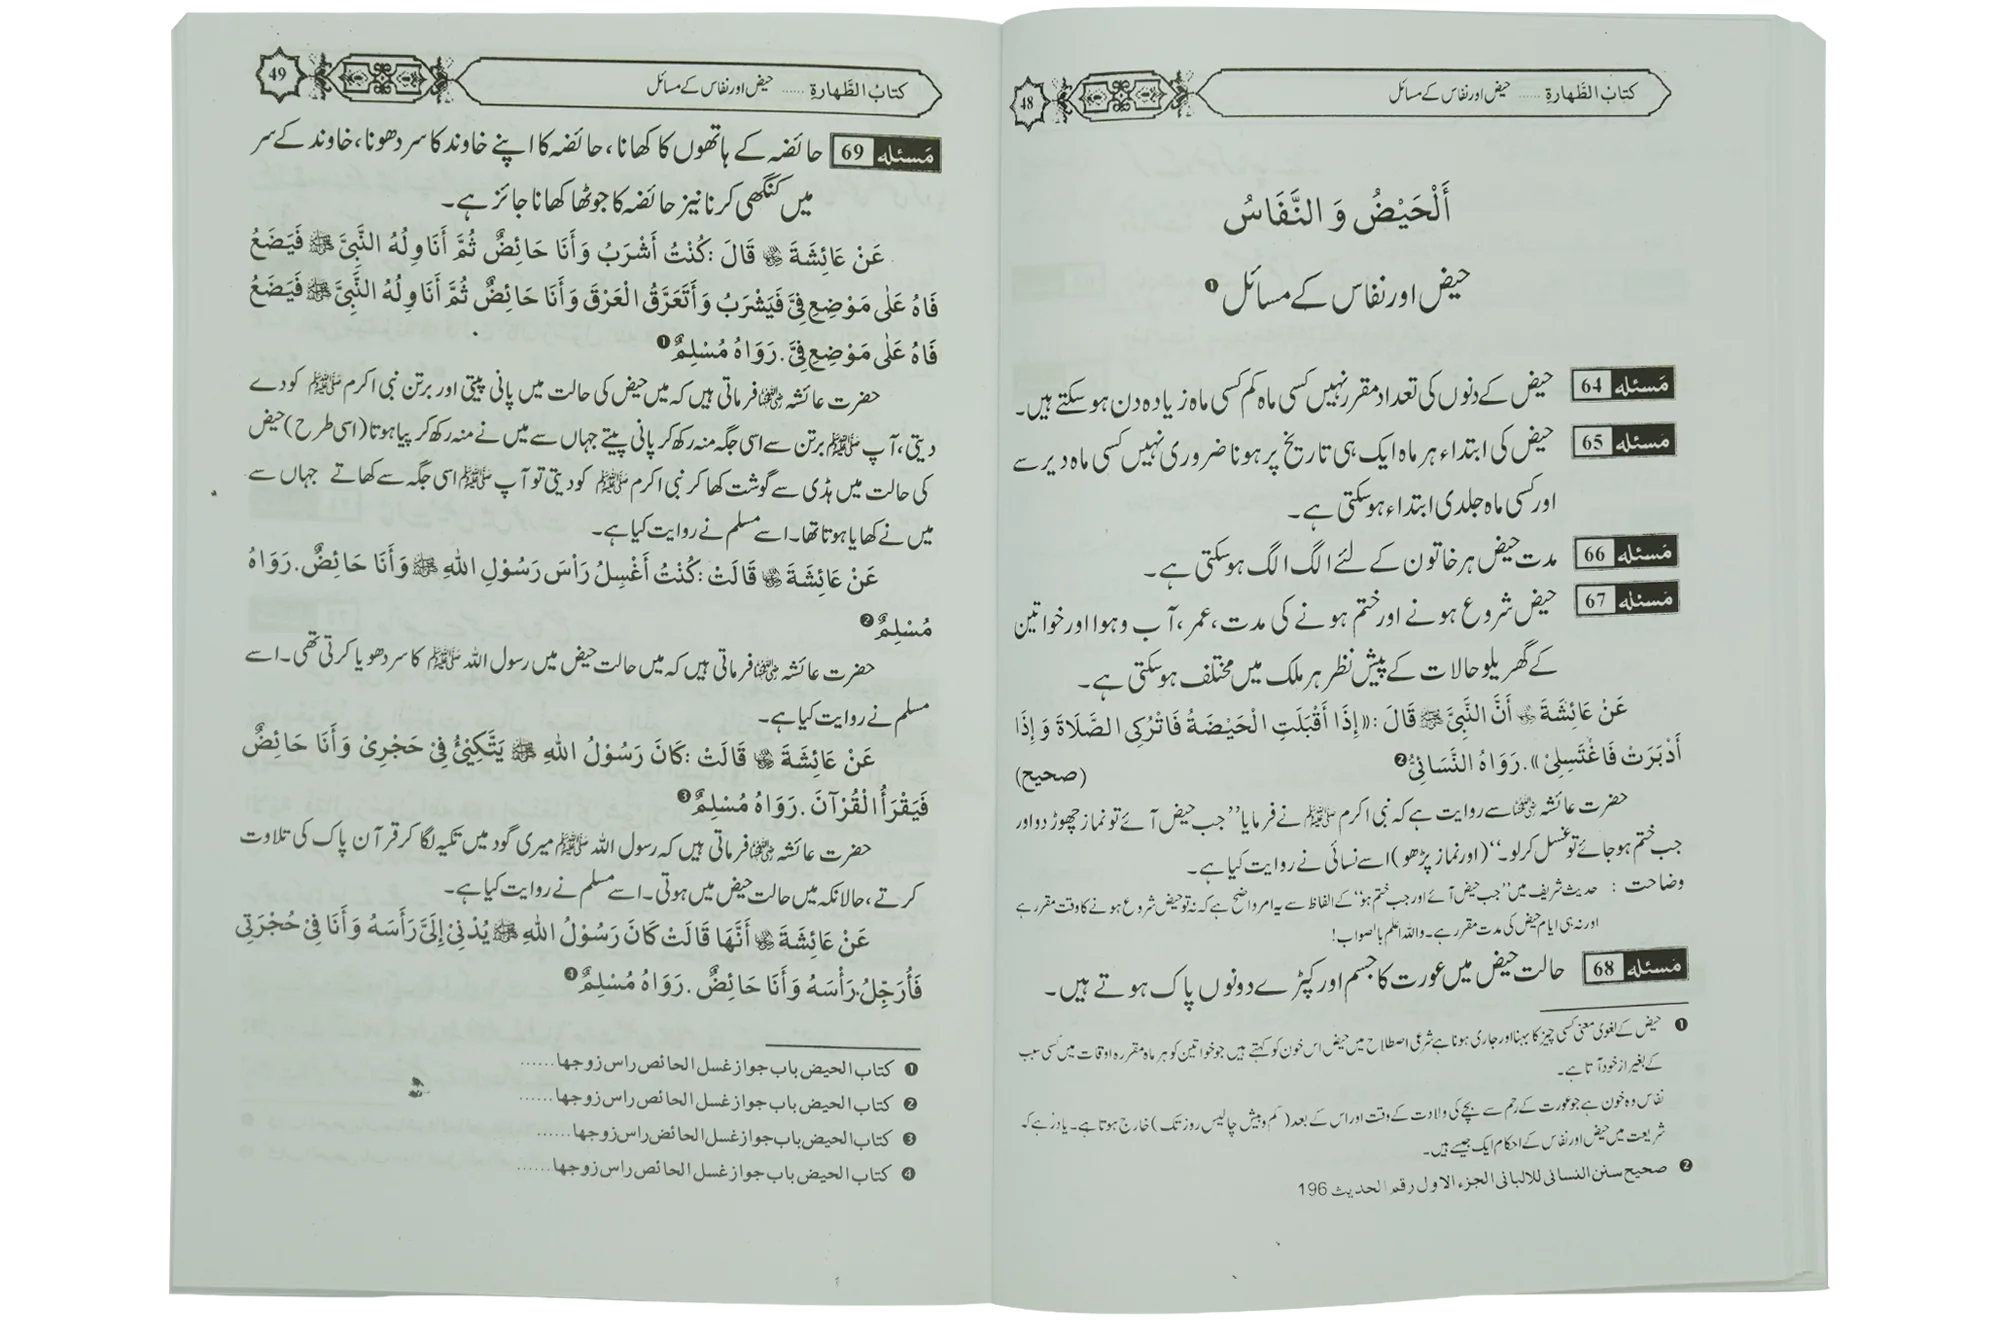 کتابُ الطَّهارة ...... حیض اور نفاس کے مسائل
48
أَلْحَيْضُ وَ النَّفَاسُ
حیض اور نفاس کے مسائل ❶
مَسئله 64 حیض کے دنوں کی تعداد مقرر نہیں کسی ماہ کم کسی ماہ زیادہ دن ہو سکتے ہیں۔
مَسئله 65 حیض کی ابتداء ہر ماہ ایک ہی تاریخ پر ہونا ضروری نہیں کسی ماہ دیر سے
اور کسی ماہ جلدی ابتداء ہو سکتی ہے۔
مَسئله 66 مدت حیض ہر خاتون کے لئے الگ الگ ہو سکتی ہے۔
مَسئله 67 حیض شروع ہونے اور ختم ہونے کی مدت، عمر، آب و ہوا اور خواتین
کے گھریلو حالات کے پیش نظر ہر ملک میں مختلف ہو سکتی ہے۔
عَنْ عَائِشَةَ رضی اللہ عنہا أَنَّ النَّبِيَّ ﷺ قَالَ : ((إِذَا أَقْبَلَتِ الْحَيْضَةُ فَاتْرُكِى الصَّلَاةَ وَ إِذَا
أَدْبَرَتْ فَاغْتَسِلِيْ)) . رَوَاهُ النَّسَائِيُّ ❷ (صحيح)
حضرت عائشہ رضی اللہ عنہا سے روایت ہے کہ نبی اکرم ﷺ نے فرمایا ’’جب حیض آئے تو نماز چھوڑ دو اور
جب ختم ہو جائے تو غسل کر لو۔‘‘ (اور نماز پڑھو) اسے نسائی نے روایت کیا ہے۔
وضاحت : حدیث شریف میں ’’جب حیض آئے اور جب ختم ہو‘‘ کے الفاظ سے یہ امر واضح ہے کہ نہ تو حیض شروع ہونے کا وقت مقرر ہے
اور نہ ہی ایام حیض کی مدت مقرر ہے۔ واللہ اعلم بالصواب!
مَسئله 68 حالت حیض میں عورت کا جسم اور کپڑے دونوں پاک ہوتے ہیں۔
❶ حیض کے لغوی معنی کسی چیز کا بہنا اور جاری ہونا ہے شرعی اصطلاح میں حیض اس خون کو کہتے ہیں جو خواتین کو ہر ماہ مقررہ اوقات میں کسی سبب
کے بغیر از خود آتا ہے۔
نفاس وہ خون ہے جو عورت کے رحم سے بچے کی ولادت کے وقت اور اس کے بعد (کم و بیش چالیس روز تک) خارج ہوتا ہے۔ یاد رہے کہ
شریعت میں حیض اور نفاس کے احکام ایک جیسے ہیں۔
❷ صحيح سنن النسائى للالبانى الجزء الاول رقم الحديث 196
کتابُ الطَّهارة ...... حیض اور نفاس کے مسائل
49
مَسئله 69 حائضہ کے ہاتھوں کا کھانا، حائضہ کا اپنے خاوند کا سر دھونا، خاوند کے سر
میں کنگھی کرنا نیز حائضہ کا جوٹھا کھانا جائز ہے۔
عَنْ عَائِشَةَ رضی اللہ عنہا قَالَ : كُنْتُ أَشْرَبُ وَ أَنَا حَائِضٌ ثُمَّ أُنَاوِلُهُ النَّبِيَّ ﷺ فَيَضَعُ
فَاهُ عَلٰى مَوْضِعِ فِيَّ فَيَشْرَبُ وَ أَتَعَرَّقُ الْعَرْقَ وَ أَنَا حَائِضٌ ثُمَّ أُنَاوِلُهُ النَّبِيَّ ﷺ فَيَضَعُ
فَاهُ عَلٰى مَوْضِعِ فِيَّ . رَوَاهُ مُسْلِمٌ ❶
حضرت عائشہ رضی اللہ عنہا فرماتی ہیں کہ میں حیض کی حالت میں پانی پیتی اور برتن نبی اکرم ﷺ کو دے
دیتی، آپ ﷺ برتن سے اسی جگہ منہ رکھ کر پانی پیتے جہاں سے میں نے منہ رکھ کر پیا ہوتا (اسی طرح) حیض
کی حالت میں ہڈی سے گوشت کھا کر نبی اکرم ﷺ کو دیتی تو آپ ﷺ اسی جگہ سے کھاتے جہاں سے
میں نے کھایا ہوتا تھا۔ اسے مسلم نے روایت کیا ہے۔
عَنْ عَائِشَةَ رضی اللہ عنہا قَالَتْ : كُنْتُ أَغْسِلُ رَأْسَ رَسُوْلِ اللهِ ﷺ وَ أَنَا حَائِضٌ . رَوَاهُ
مُسْلِمٌ ❷
حضرت عائشہ رضی اللہ عنہا فرماتی ہیں کہ میں حالت حیض میں رسول اللہ ﷺ کا سر دھویا کرتی تھی۔ اسے
مسلم نے روایت کیا ہے۔
عَنْ عَائِشَةَ رضی اللہ عنہا قَالَتْ : كَانَ رَسُوْلُ اللهِ ﷺ يَتَّكِئُ فِيْ حَجْرِيْ وَ أَنَا حَائِضٌ
فَيَقْرَأُ الْقُرْآنَ . رَوَاهُ مُسْلِمٌ ❸
حضرت عائشہ رضی اللہ عنہا فرماتی ہیں کہ رسول اللہ ﷺ میری گود میں تکیہ لگا کر قرآن پاک کی تلاوت
کرتے، حالانکہ میں حالت حیض میں ہوتی۔ اسے مسلم نے روایت کیا ہے۔
عَنْ عَائِشَةَ رضی اللہ عنہا أَنَّهَا قَالَتْ كَانَ رَسُوْلُ اللهِ ﷺ يُدْنِيْ إِلَيَّ رَأْسَهُ وَ أَنَا فِيْ حُجْرَتِي
فَأُرَجِّلُ رَأْسَهُ وَ أَنَا حَائِضٌ . رَوَاهُ مُسْلِمٌ ❹
❶ کتاب الحیض باب جواز غسل الحائض راس زوجها ......
❷ کتاب الحیض باب جواز غسل الحائض راس زوجها ......
❸ کتاب الحیض باب جواز غسل الحائض راس زوجها ......
❹ کتاب الحیض باب جواز غسل الحائض راس زوجها ......